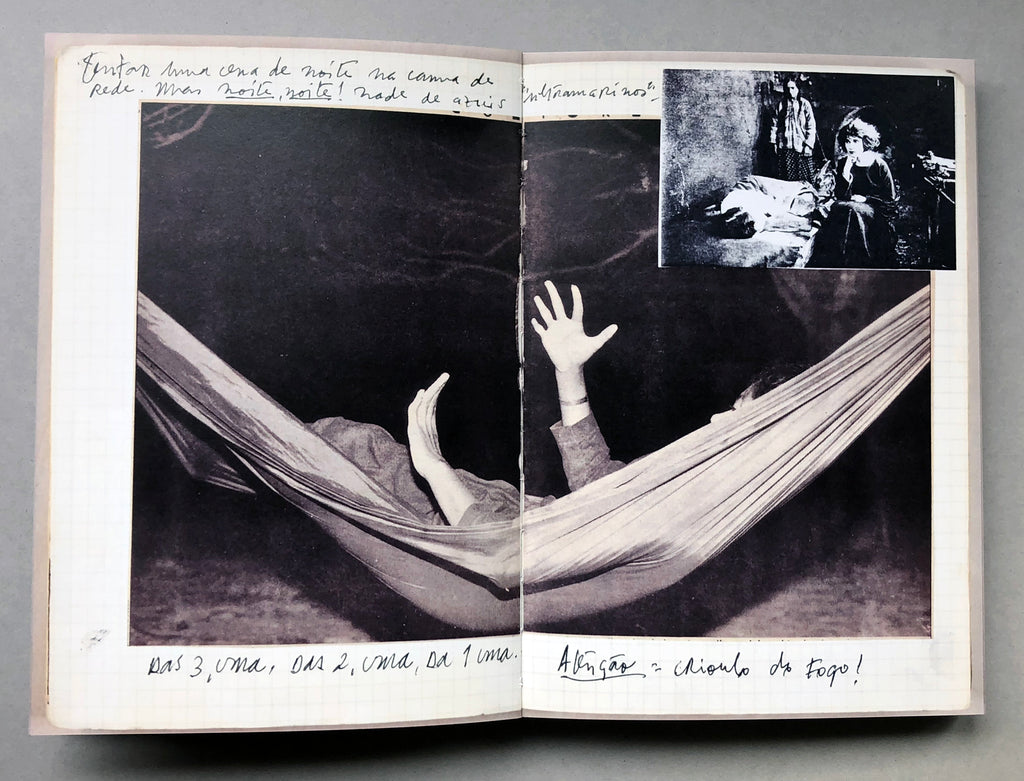 Tentar uma cena de noite na cama de
rede. Mas noite, noite! nada de azuis "ultramarinos".
DAS 3, UMA, DAS 2, UMA, DA 1 UMA.
Atenção = crioulo do Fogo!